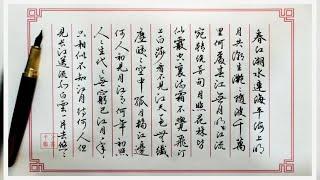 春江潮水連海平海上明
月共潮生灩〻隨波千萬
里何處春江無月明江流
宛轉繞芳甸月照花林皆
似霰空裏流霜不覺飛汀
上白沙看不見江天一色無纖
塵皎〻空中孤月輪江邊
何人初見月江月何年初照
人〻生代〻無窮已江月年〻
只相似不知江月待何人但
見長江送流水白雲一片去悠〻